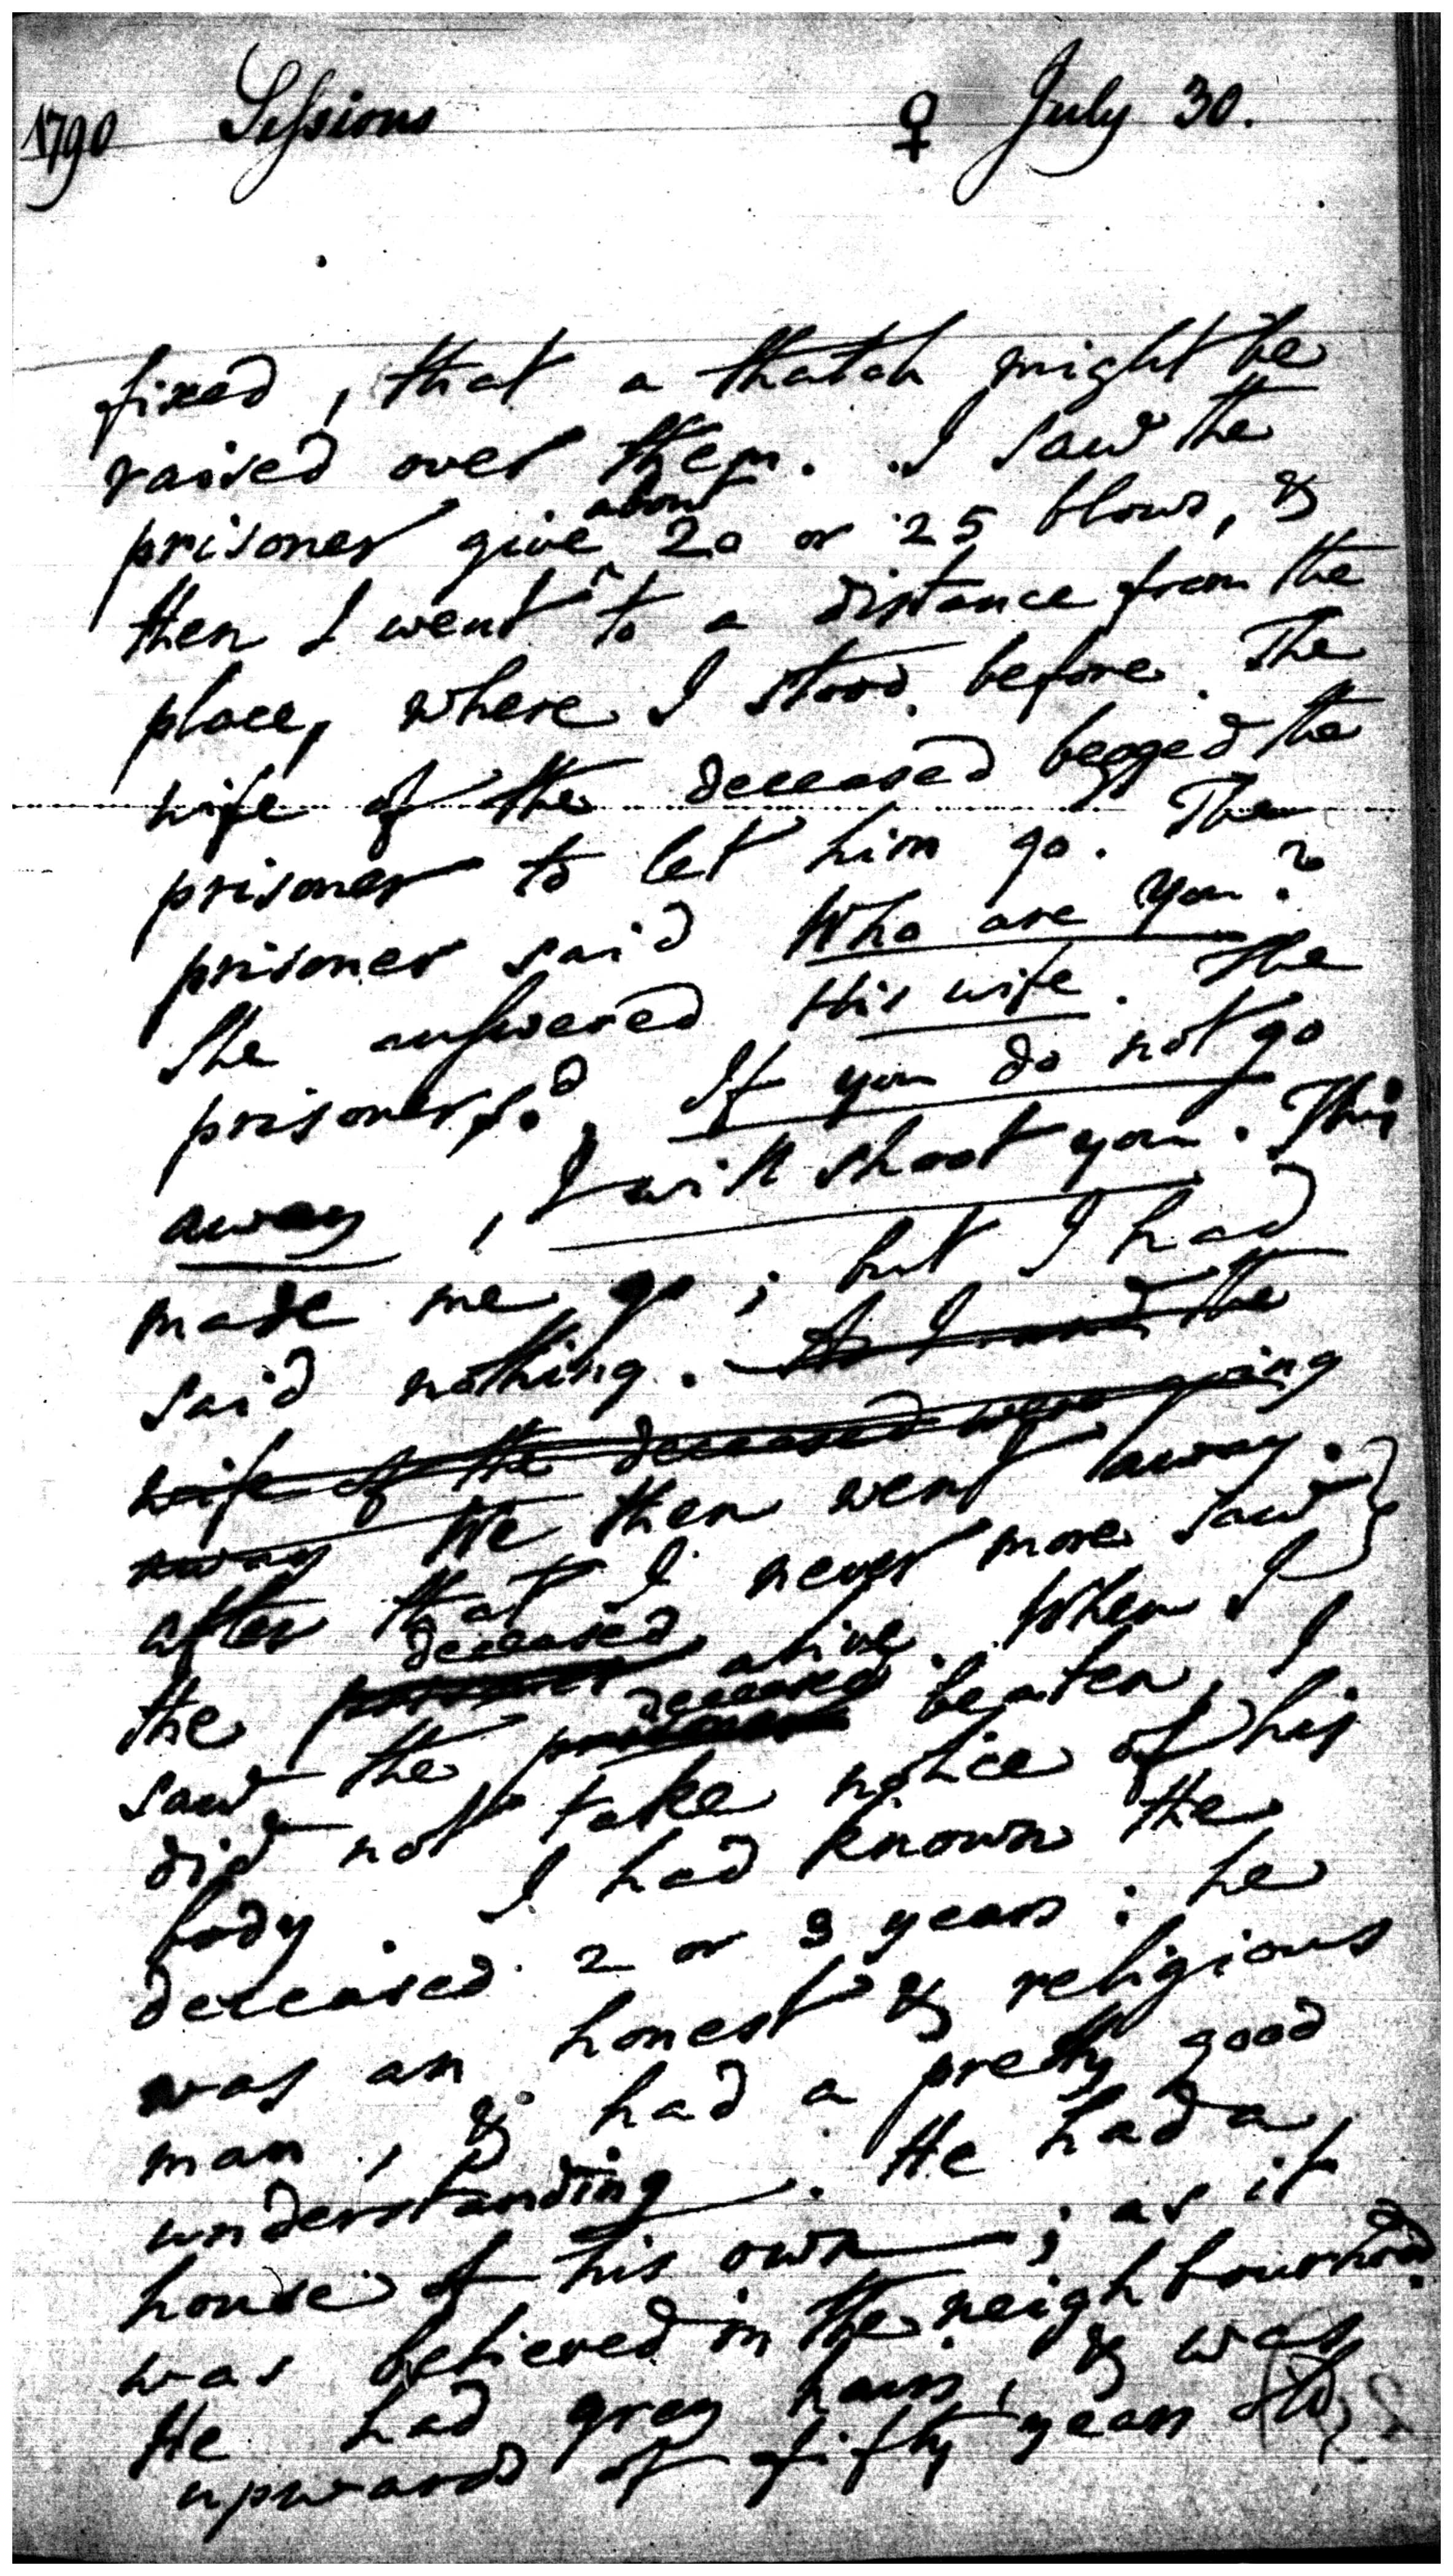 1790 Sessions ♀ July 30.
fixed, that a thatch might be
raised over them. I saw the
about
prisoner give 20 or 25 blows, &
then I went to a distance from the
place, where I stood before. The
wife of the deceased begged the
prisoner to let him go. The
prisoner said Who are you?
She answered His wife. The
prisoner s.d, If you do not go
away, I will shoot you. This
made me go; but I had
said nothing. As I and the
wife of the deceased were going
away We then went away.
after that I never more saw
deceased
the prisoner alive. When I
deceased
saw the prisoner beaten, I
did not take notice of his
body. I had known the
deceased 2 or 3 years: he
was an honest & religious
man, & had a pretty good
understanding. He had a
house of his own; as it
was believed in the neighbourhood.
He had grey hairs, & was
upwards of fifty years old